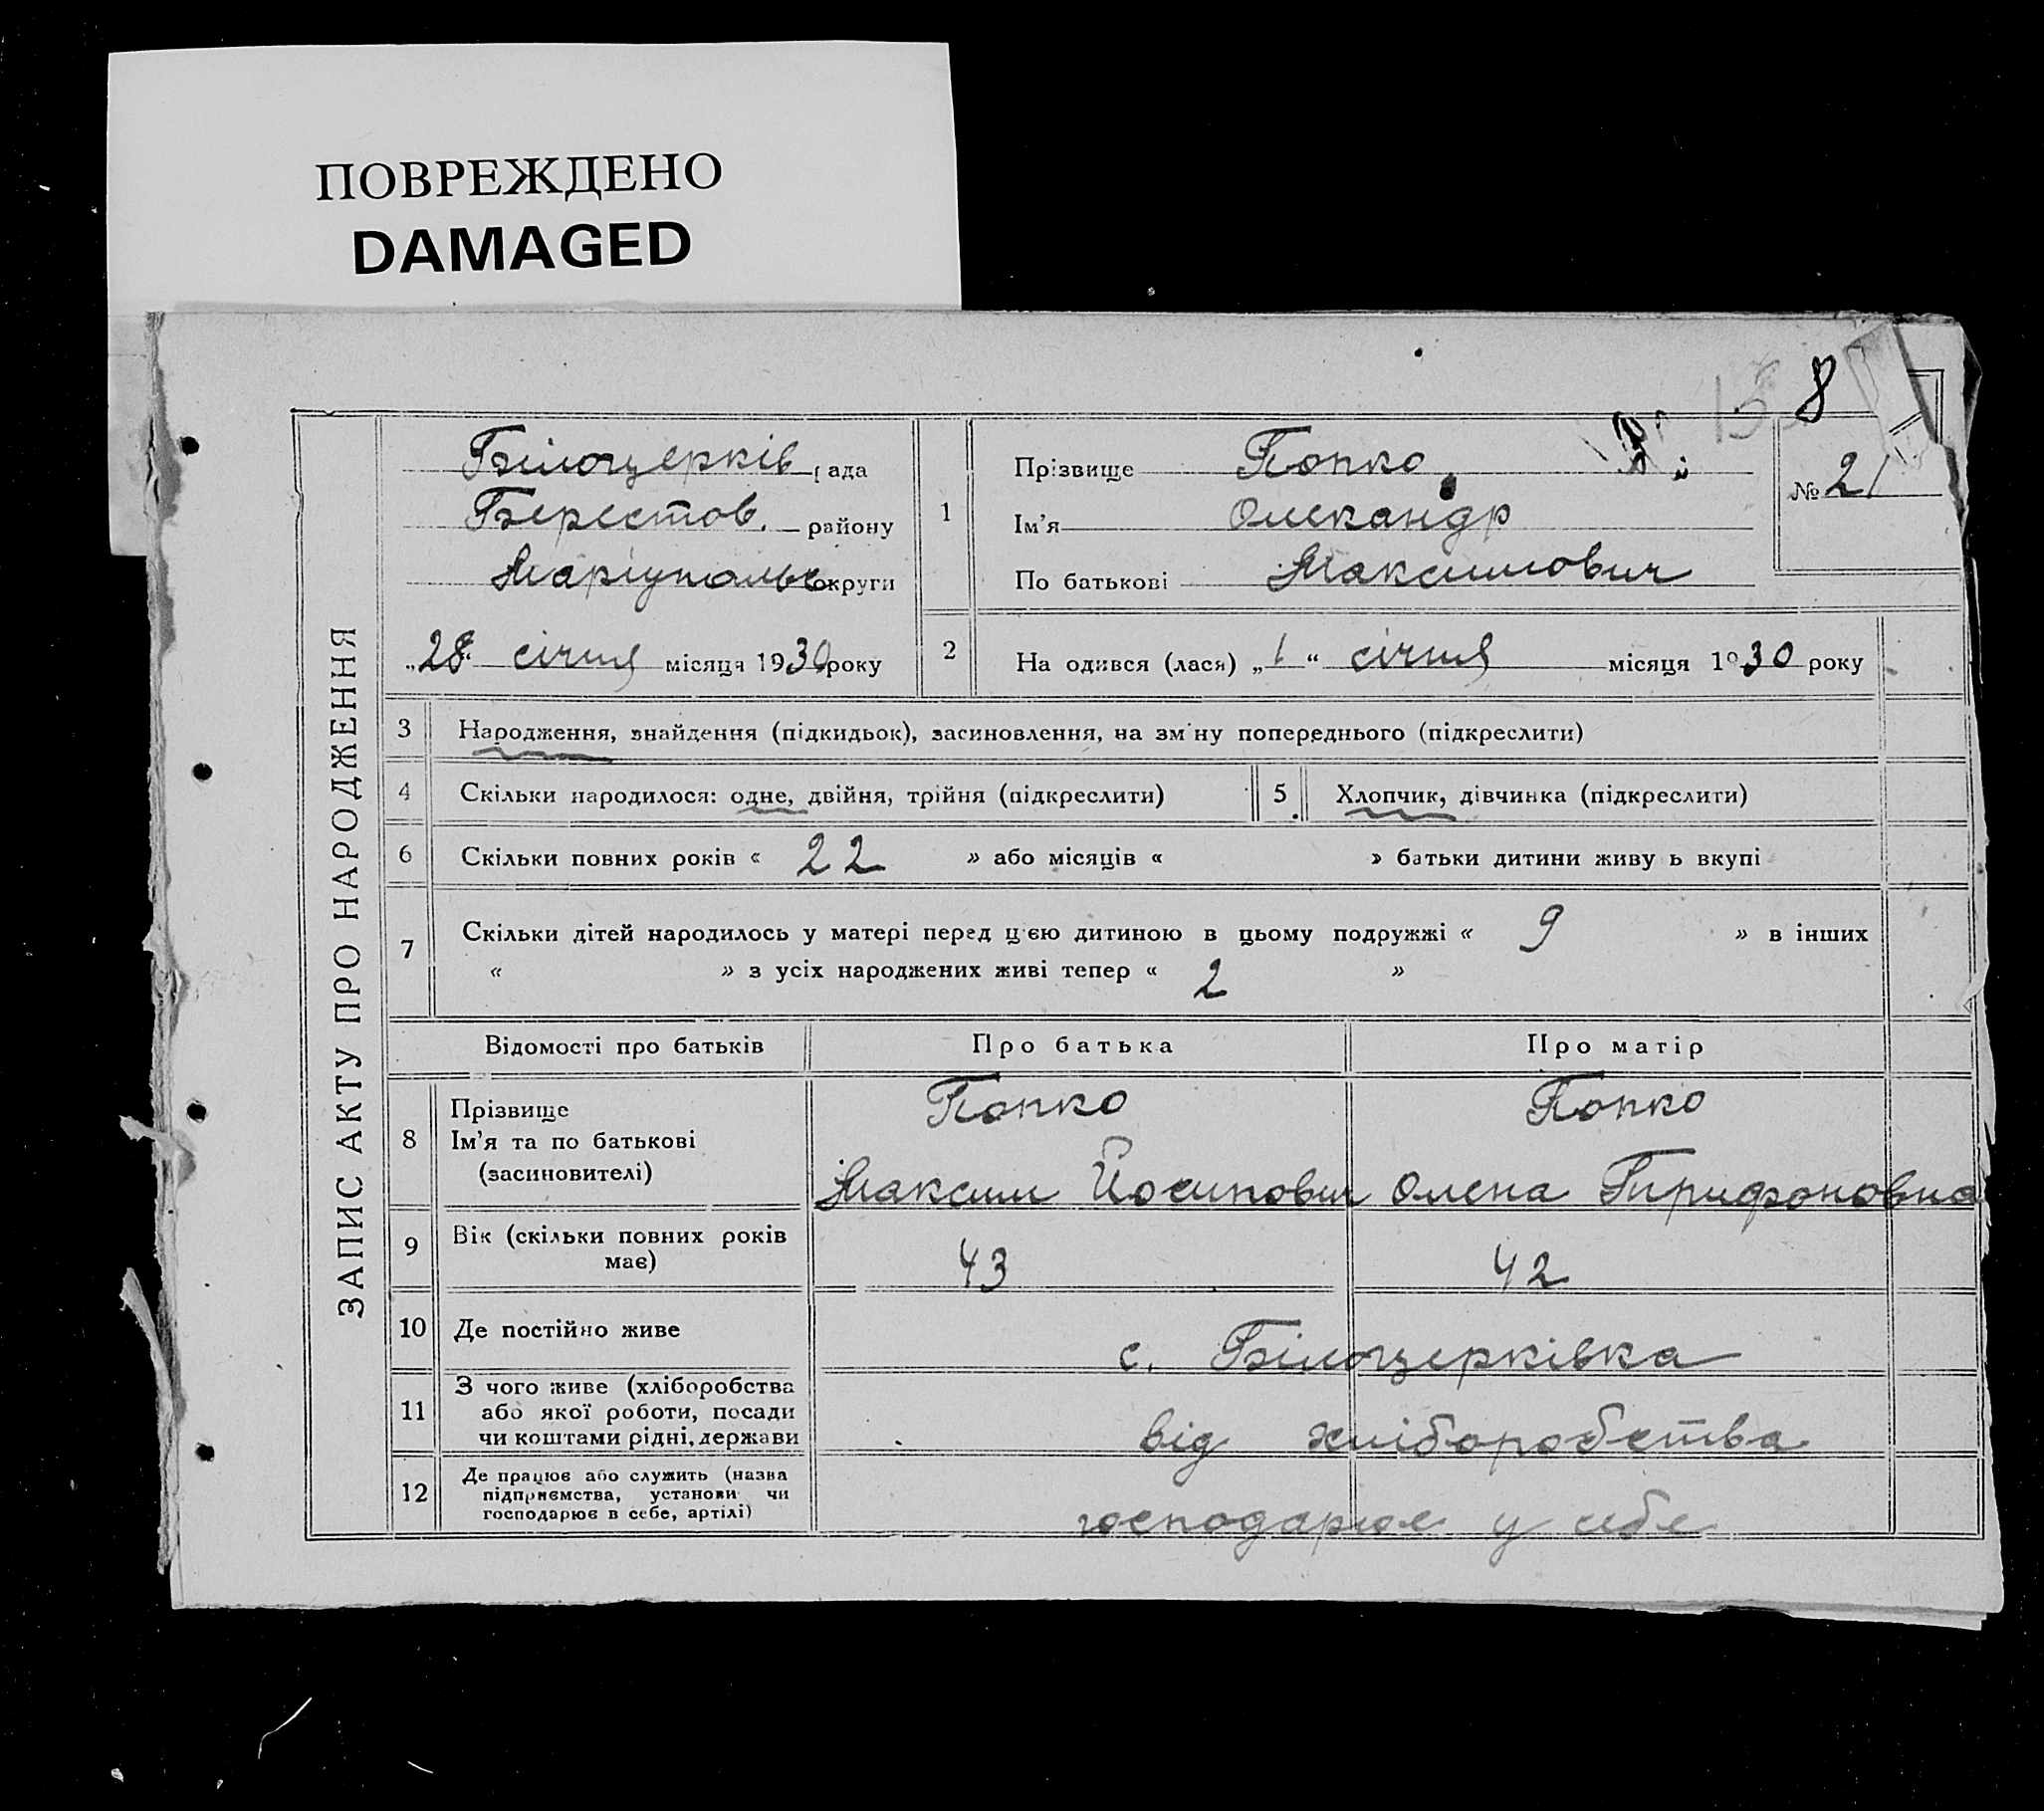 ПОВРЕЖДЕНО
DAMAGED
8
ЗАПИС АКТУ ПРО НАРОДЖЕННЯ
Білоцерків рада
Берестов. району
Маріупольс округи
„28“ січня місяця 1930 року
1
Прізвище Попко
Ім'я Олександр
По батькові Максимович
№ 21
2
На одився (лася) „1“ січня місяця 1930 року
3 Народження, знайдення (підкидьок), засиновлення, на зм ну попереднього (підкреслити)
4 Скільки народилося: одне, двійня, трійня (підкреслити) 5 Хлопчик, дівчинка (підкреслити)
6 Скільки повних років « 22 » або місяців « » батьки дитини живу ь вкупі
7 Скільки дітей народилось у матері перед ц єю дитиною в цьому подружжі « 9 » в інших
« » з усіх народжених живі тепер « 2 »
Відомості про батьків Про батька Про матір
8 Прізвище Попко Попко
Ім'я та по батькові
(засиновителі) Максим Йосипович Олена Трифоновна
9 Вік (скільки повних років
має) 43 42
10 Де постійно живе с. Білоцерківка
11 З чого живе (хліборобства
або якої роботи, посади
чи коштами рідні, держави від хліборобства
12 Де працює або служить (назва
підприємства, установи чи
господарює в себе, артілі) господарює у себе